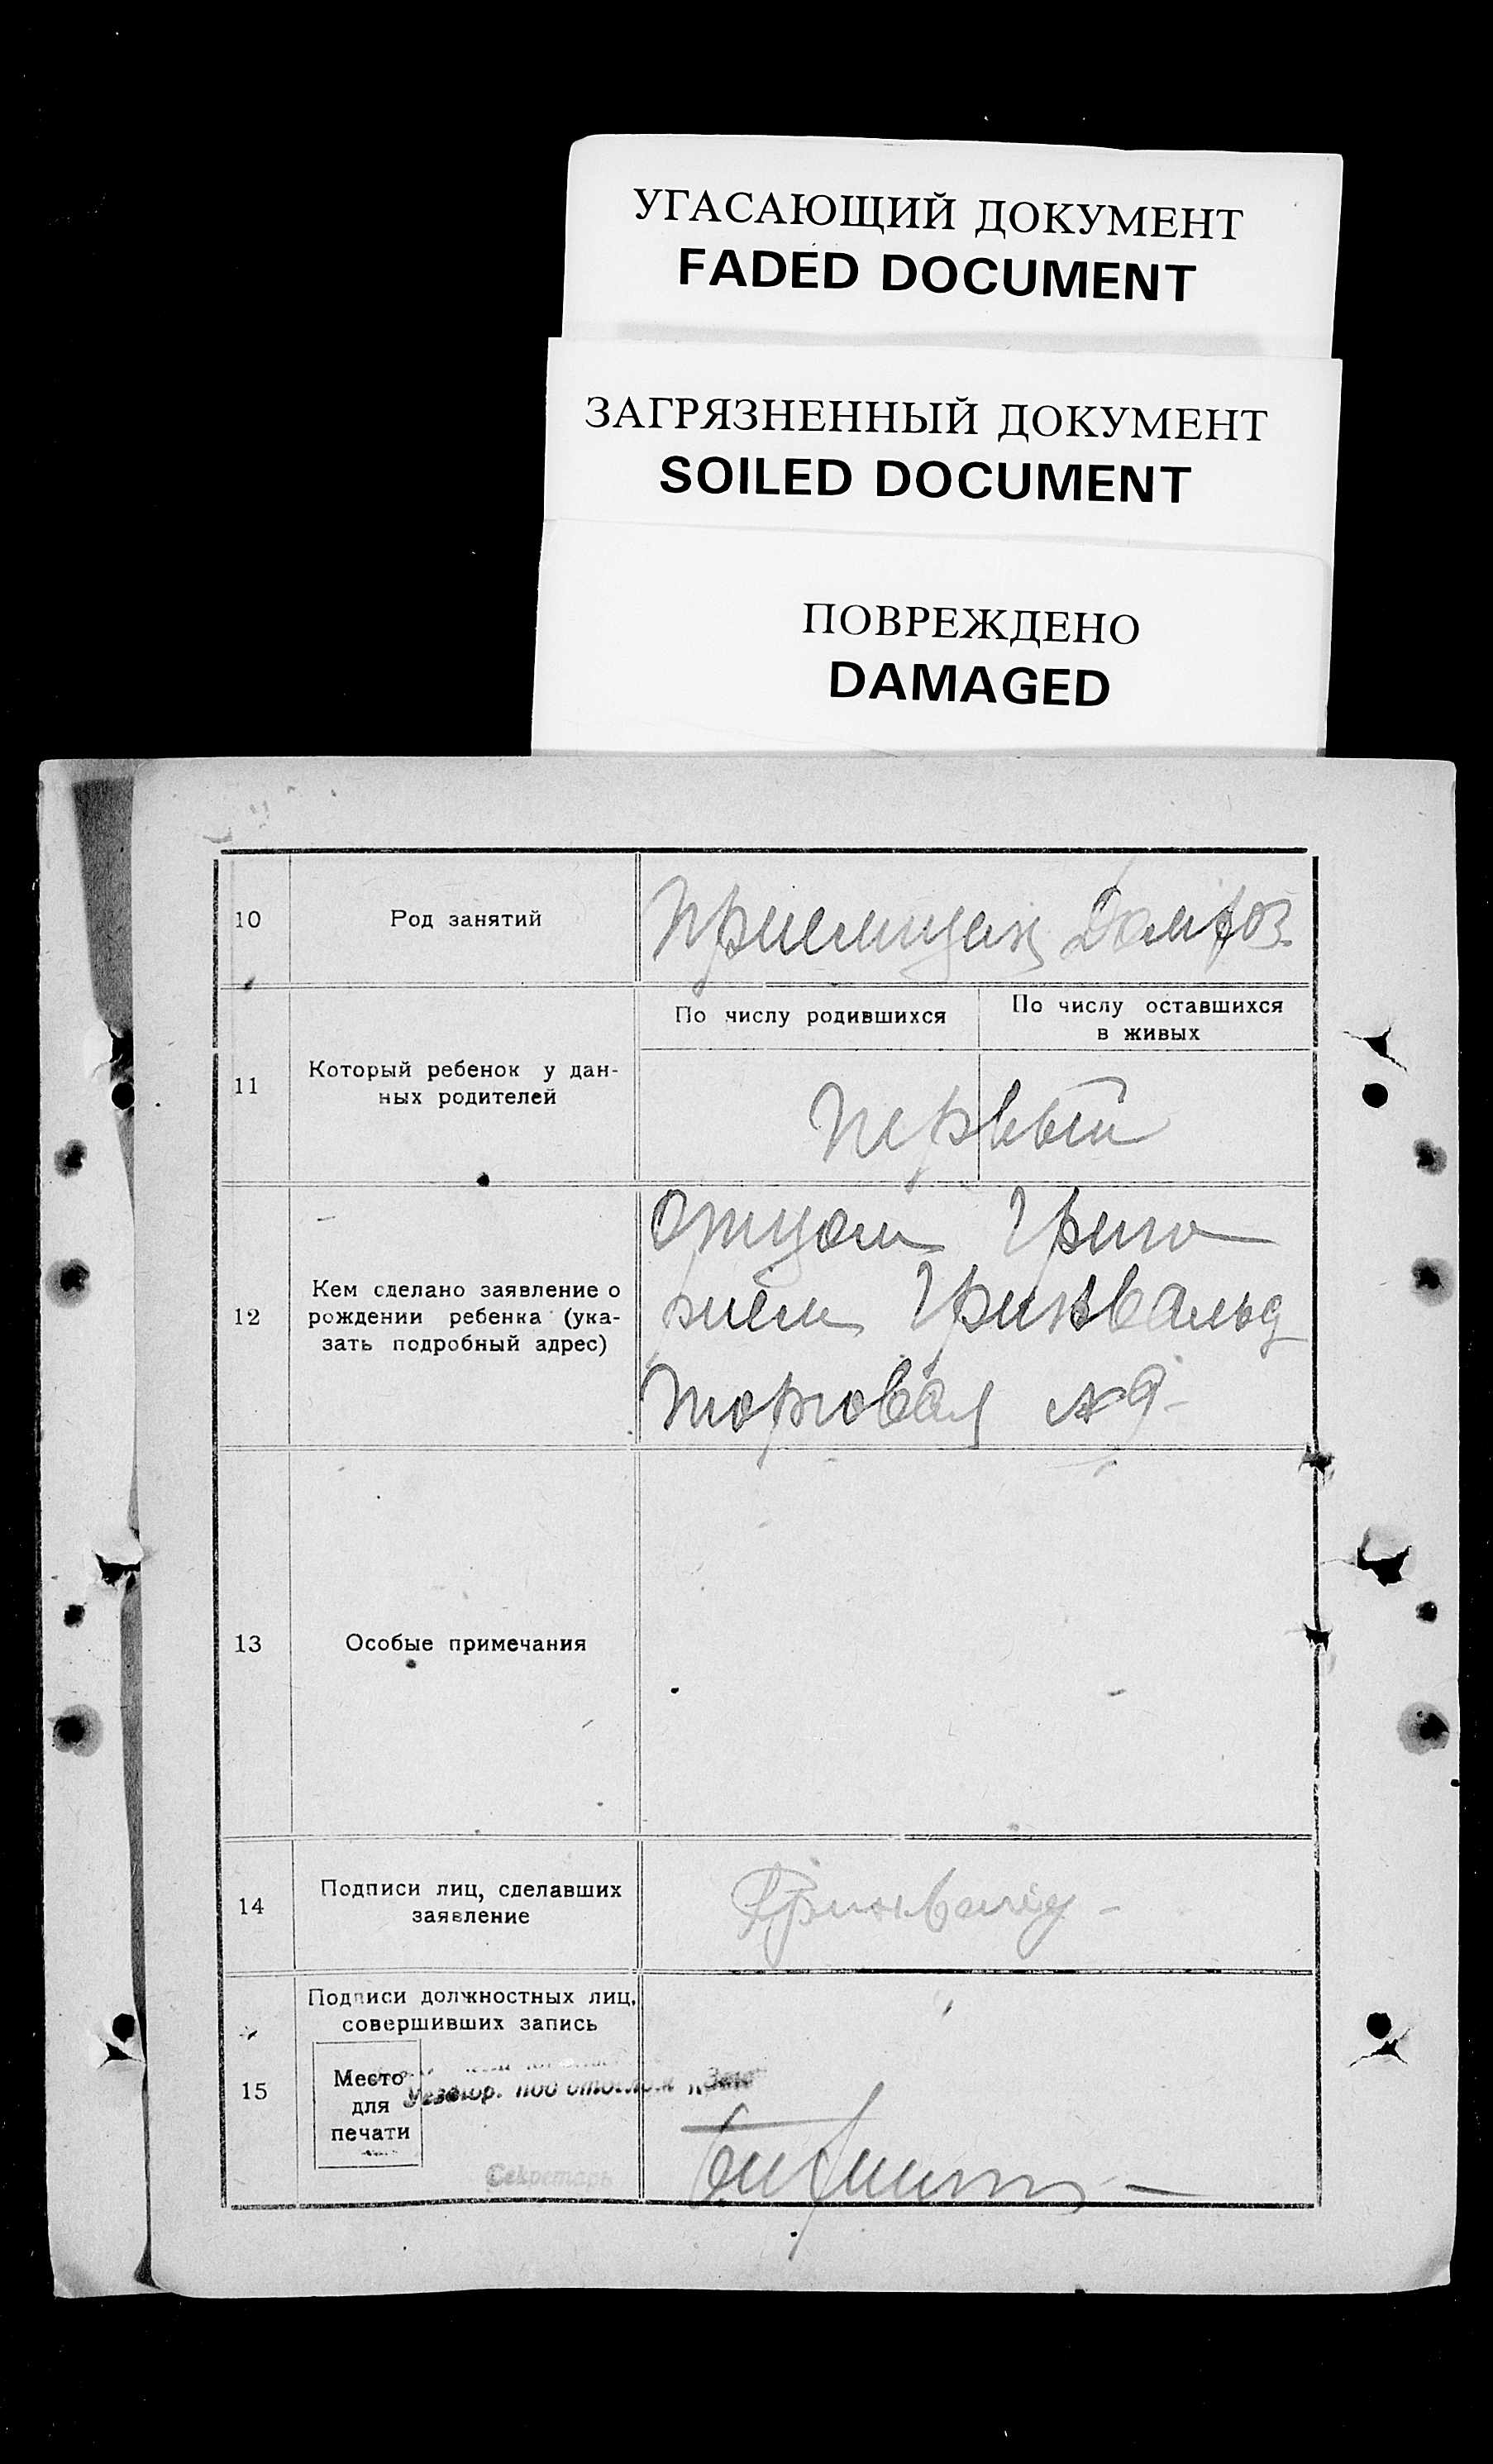 УГАСАЮЩИЙ ДОКУМЕНТ
FADED DOCUMENT
ЗАГРЯЗНЕННЫЙ ДОКУМЕНТ
SOILED DOCUMENT
ПОВРЕЖДЕНО
DAMAGED
10
Род занятий
Приемщик
11
Который ребенок у дан-
ных родителей
По числу родившихся
По числу оставшихся
в живых
Первый
12
Кем сделано заявление о
рождении ребенка (ука-
зать подробный адрес)
Отцом Григо
рием Гринвальд
Торговая № 9
13
Особые примечания
14
Подписи лиц, сделавших
заявление
Гринвальд
15
Подписи должностных лиц,
совершивших запись
Место
для
печати
под отделом
Секретарь